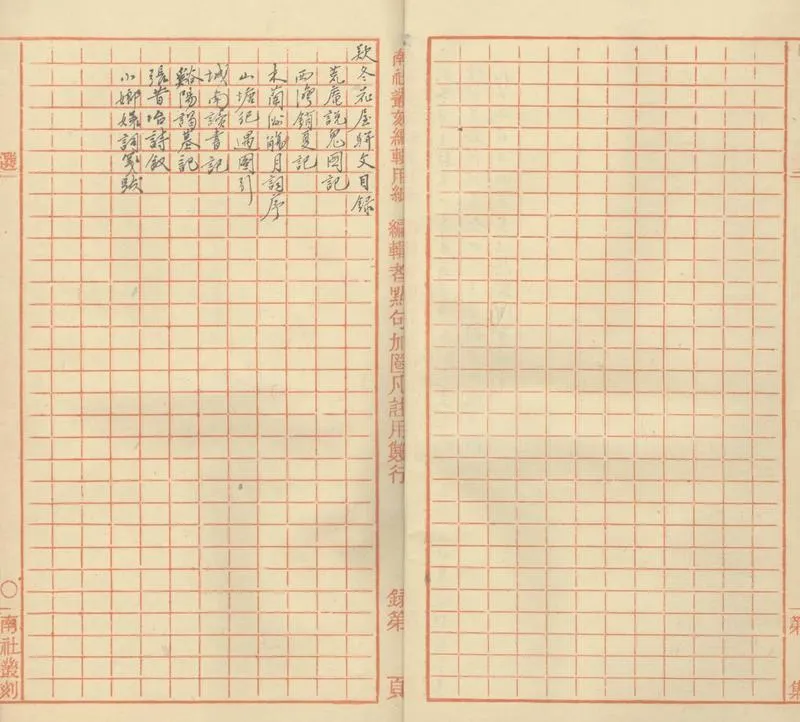 第 集
南社叢刻編輯用紙 編輯者點句加圈凡註用雙行 錄第 頁
欵冬花屋駢文目錄
荒庵說鬼圖記
西灣銷夏記
木蘭泛觴月詞序
山塘紀遇圖引
城南讀書記
谿陽謁墓記
張昔怡詩敘
小嫏嬛詞
選 南社叢刻